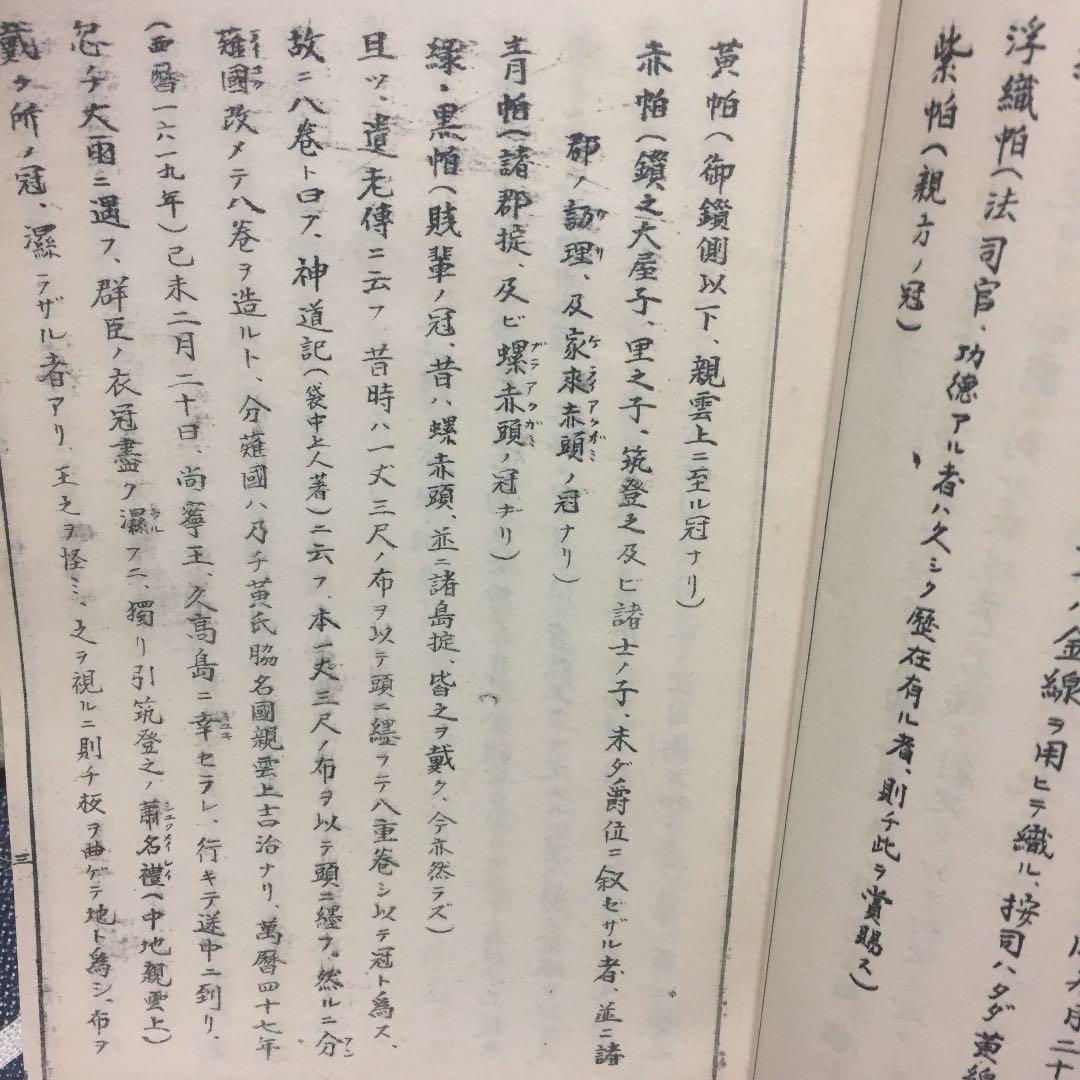 金線ヲ用ヒテ織ル、按司ハタダ黄線
浮織帕(法司官、功徳アル者ハ久シク歴在有ル者、則チ此ヲ賞賜ス)
紫帕(親方ノ冠)
黄帕(御鎖側以下、親雲上ニ至ル冠ナリ)
赤帕(鎖之大屋子、里之子、筑登之及ビ諸士ノ子、未ダ爵位ニ叙セザル者、並ニ諸
郡ノ訪理、及家来赤頭ノ冠ナリ)
青帕(諸郡掟、及ビ螺赤頭ノ冠ナリ)
緑・黒帕(賤輩ノ冠、昔ハ螺赤頭、並ニ諸島掟、皆之ヲ戴ク、今亦然ラズ)
且ツ、遺老傳ニ云フ、昔時ハ一丈三尺ノ布ヲ以テ頭ニ纒ヲテ八重巻シ以テ冠ト為ス、
故ニ八巻ト曰フ、神道記(袋中上人著)ニ云フ、本一丈三尺ノ布ヲ以テ頭ニ纒フ。然ルニ分
薙國改メテ八巻ヲ造ルト、分薙國ハ乃チ黄氏脇名國親雲上吉治ナリ、萬暦四十七年
(西暦一六一九年)己未二月二十日、尚寧王、久高島ニ幸セラレ、行キテ送中ニ到リ、
忽チ大雨ニ遇フ、群臣ノ衣冠盡ク濕フニ、獨リ引筑登之ノ蕭名禮(中地親雲上)
戴ク所ノ冠、濕ラザル者アリ、王之ヲ怪ミ、之ヲ視ルニ則チ板ヲ曲ゲテ地ト為シ、布ヲ
三